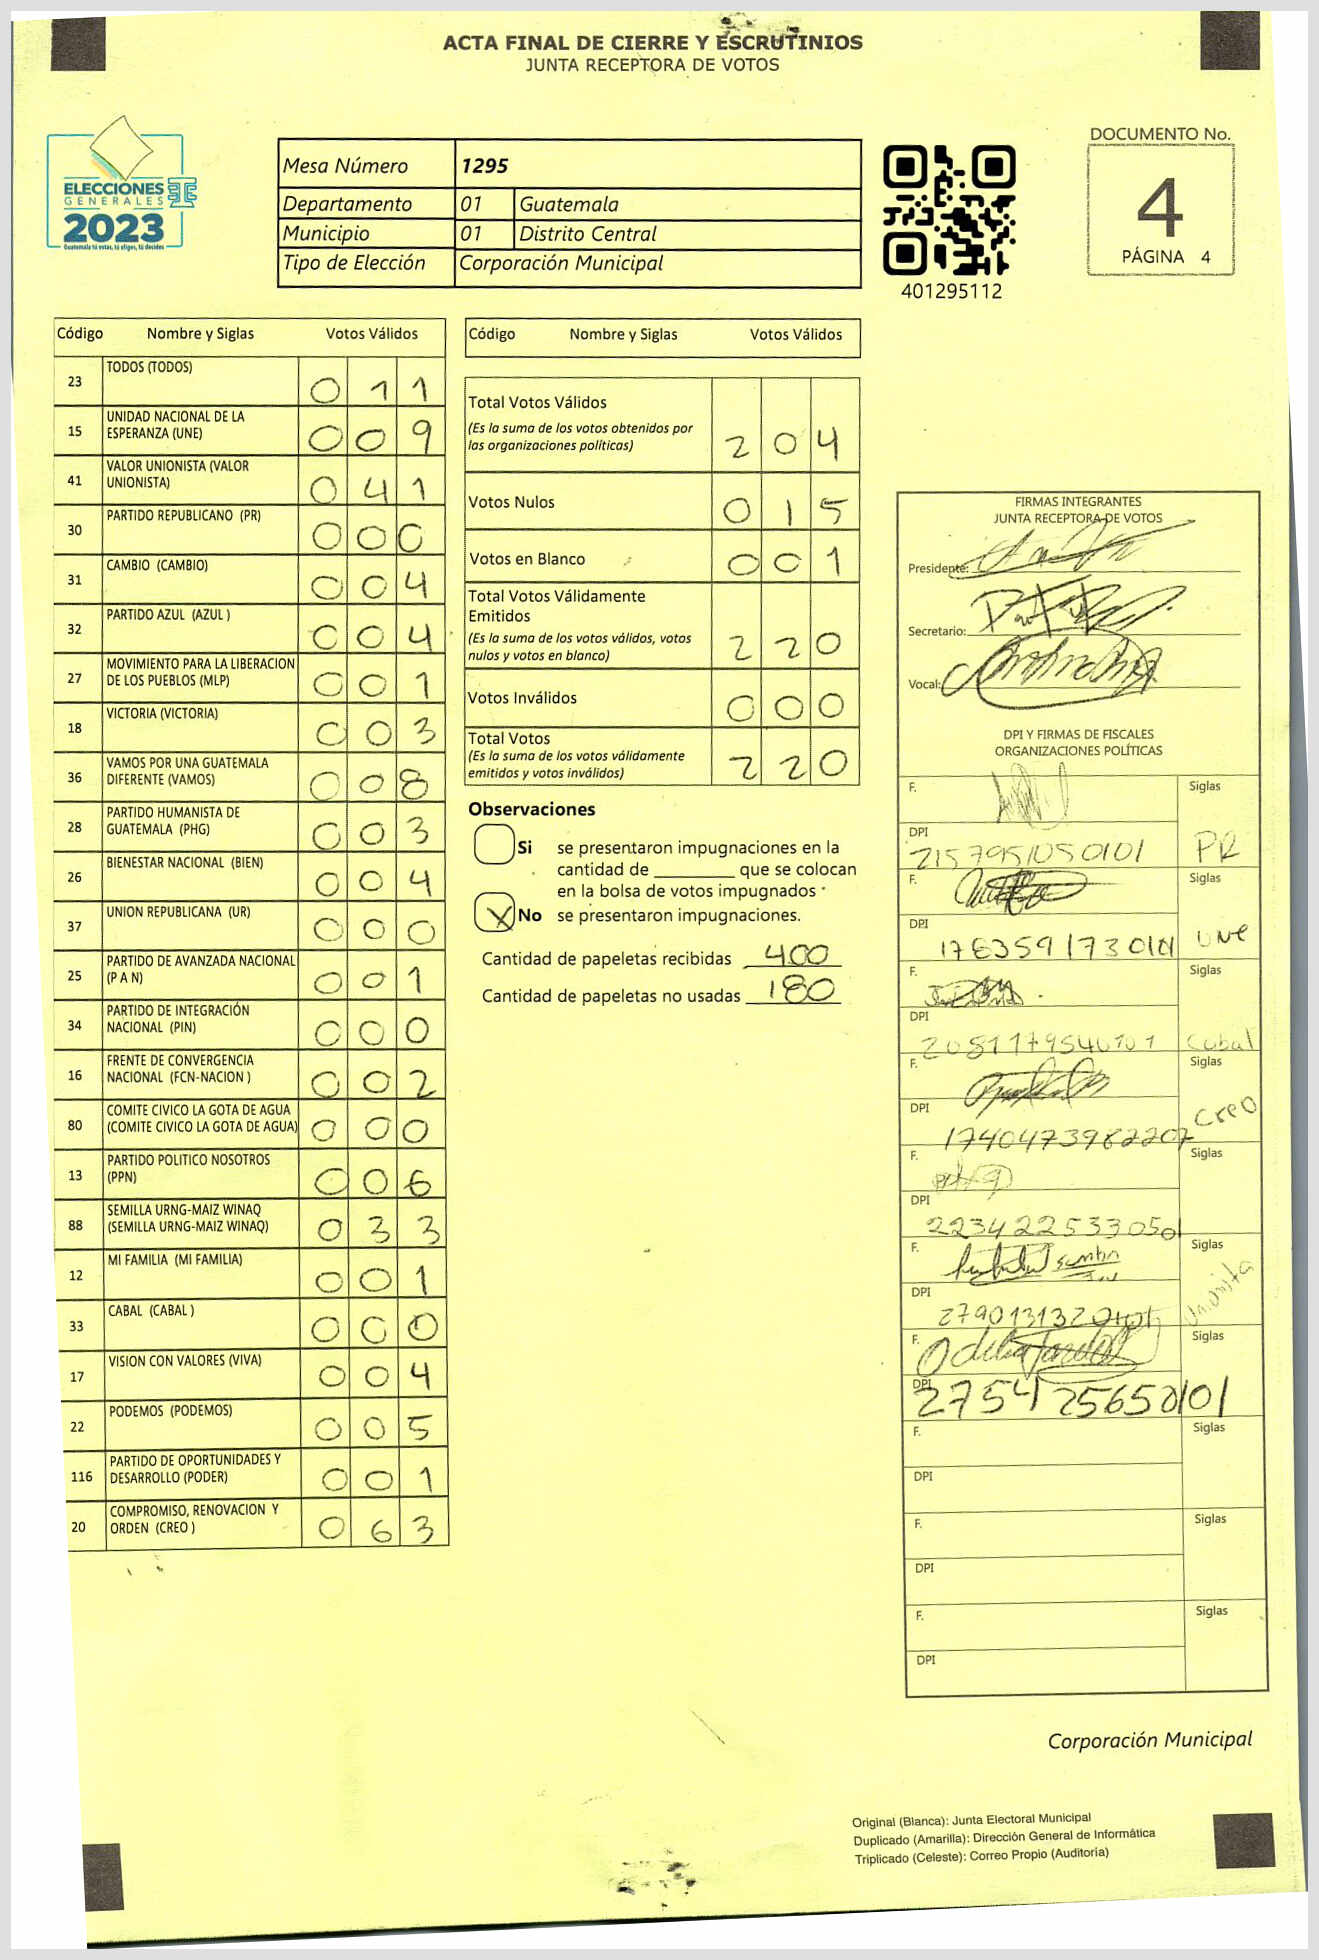 ACTA FINAL DE CIERRE Y ESCRUTINIOS
JUNTA RECEPTORA DE VOTOS
ELECCIONES
GENERALES
2023
Guatemala tú votas, tú eliges, tú decides
Mesa Número 1295
Departamento 01 Guatemala
Municipio 01 Distrito Central
Tipo de Elección Corporación Municipal
401295112
DOCUMENTO No.
4
PÁGINA 4
Código Nombre y Siglas Votos Válidos
23 TODOS (TODOS) 0 1 1
15 UNIDAD NACIONAL DE LA
ESPERANZA (UNE) 0 0 9
41 VALOR UNIONISTA (VALOR
UNIONISTA) 0 4 1
30 PARTIDO REPUBLICANO (PR) 0 0 0
31 CAMBIO (CAMBIO) 0 0 4
32 PARTIDO AZUL (AZUL ) 0 0 4
27 MOVIMIENTO PARA LA LIBERACION
DE LOS PUEBLOS (MLP) 0 0 1
18 VICTORIA (VICTORIA) 0 0 3
36 VAMOS POR UNA GUATEMALA
DIFERENTE (VAMOS) 0 0 8
28 PARTIDO HUMANISTA DE
GUATEMALA (PHG) 0 0 3
26 BIENESTAR NACIONAL (BIEN) 0 0 4
37 UNION REPUBLICANA (UR) 0 0 0
25 PARTIDO DE AVANZADA NACIONAL
(P A N) 0 0 1
34 PARTIDO DE INTEGRACIÓN
NACIONAL (PIN) 0 0 0
16 FRENTE DE CONVERGENCIA
NACIONAL (FCN-NACION ) 0 0 2
80 COMITE CIVICO LA GOTA DE AGUA
(COMITE CIVICO LA GOTA DE AGUA) 0 0 0
13 PARTIDO POLITICO NOSOTROS
(PPN) 0 0 6
88 SEMILLA URNG-MAIZ WINAQ
(SEMILLA URNG-MAIZ WINAQ) 0 3 3
12 MI FAMILIA (MI FAMILIA) 0 0 1
33 CABAL (CABAL ) 0 0 0
17 VISION CON VALORES (VIVA) 0 0 4
22 PODEMOS (PODEMOS) 0 0 5
116 PARTIDO DE OPORTUNIDADES Y
DESARROLLO (PODER) 0 0 1
20 COMPROMISO, RENOVACION Y
ORDEN (CREO ) 0 6 3
Código Nombre y Siglas Votos Válidos
Total Votos Válidos
(Es la suma de los votos obtenidos por
las organizaciones políticas) 2 0 4
Votos Nulos 0 1 5
Votos en Blanco 0 0 1
Total Votos Válidamente
Emitidos
(Es la suma de los votos válidos, votos
nulos y votos en blanco) 2 2 0
Votos Inválidos 0 0 0
Total Votos
(Es la suma de los votos válidamente
emitidos y votos inválidos) 2 2 0
Observaciones
Si se presentaron impugnaciones en la
cantidad de ________ que se colocan
en la bolsa de votos impugnados
X No se presentaron impugnaciones.
Cantidad de papeletas recibidas 400
Cantidad de papeletas no usadas 180
FIRMAS INTEGRANTES
JUNTA RECEPTORA DE VOTOS
Presidente:
Secretario:
Vocal:
DPI Y FIRMAS DE FISCALES
ORGANIZACIONES POLÍTICAS
F. Siglas
DPI
2157951050101 PR
F. Siglas
DPI
1783591730101 UNE
F. Siglas
DPI
2081179540101 Cabal
F. Siglas
DPI
1740473982207 Creo
F. Siglas
DPI
2234225330501
F. Siglas
DPI
2790131320101 Unionista
F. Odelia Siglas
DPI
2754256520101
F. Siglas
DPI
F. Siglas
DPI
F. Siglas
DPI
Corporación Municipal
Original (Blanca): Junta Electoral Municipal
Duplicado (Amarilla): Dirección General de Informática
Triplicado (Celeste): Correo Propio (Auditoría)